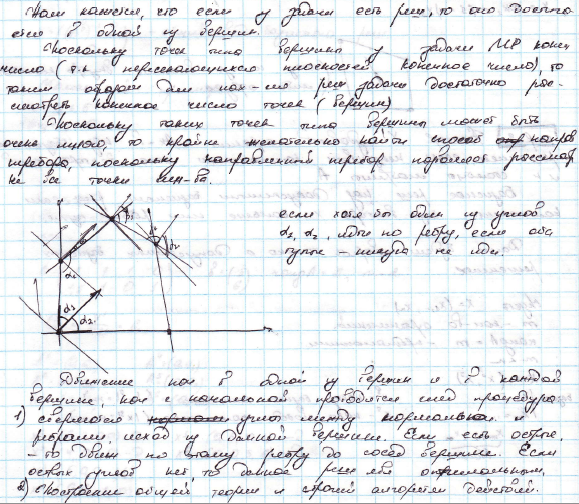 Нам кажется, что если у задачи есть реш, то оно достига
ется в одной из вершин.
Поскольку точек типа вершины у задачи МР конеч
число (т.к. пересекающихся плоскостей конечное число), то
таким образом для нах-ия реш задачи достаточно рас-
смотреть конечное число точек (вершин)
Поскольку таких точек типа вершины может быть
очень много, то крайне желательно найти способ направ
перебора, поскольку направленный перебор позволяет рассматр
не все точки мн-ва.
если хотя бы один из углов
α₁, α₂, идти по ребру, если оба
тупые – никуда не идти.
α₁
α₂
Движение нач в одной из вершин и в каждой
вершине, нач с начальной проводится след процедура
1) сверяются углы между нормалью и
ребрами, исход из данной вершины. Если есть острые,
-то движ по этому ребру до сосед вершине. Если
острых углов нет то данное реш явл оптимальным.
2) Построение общей теории и строгий алгоритм действий.